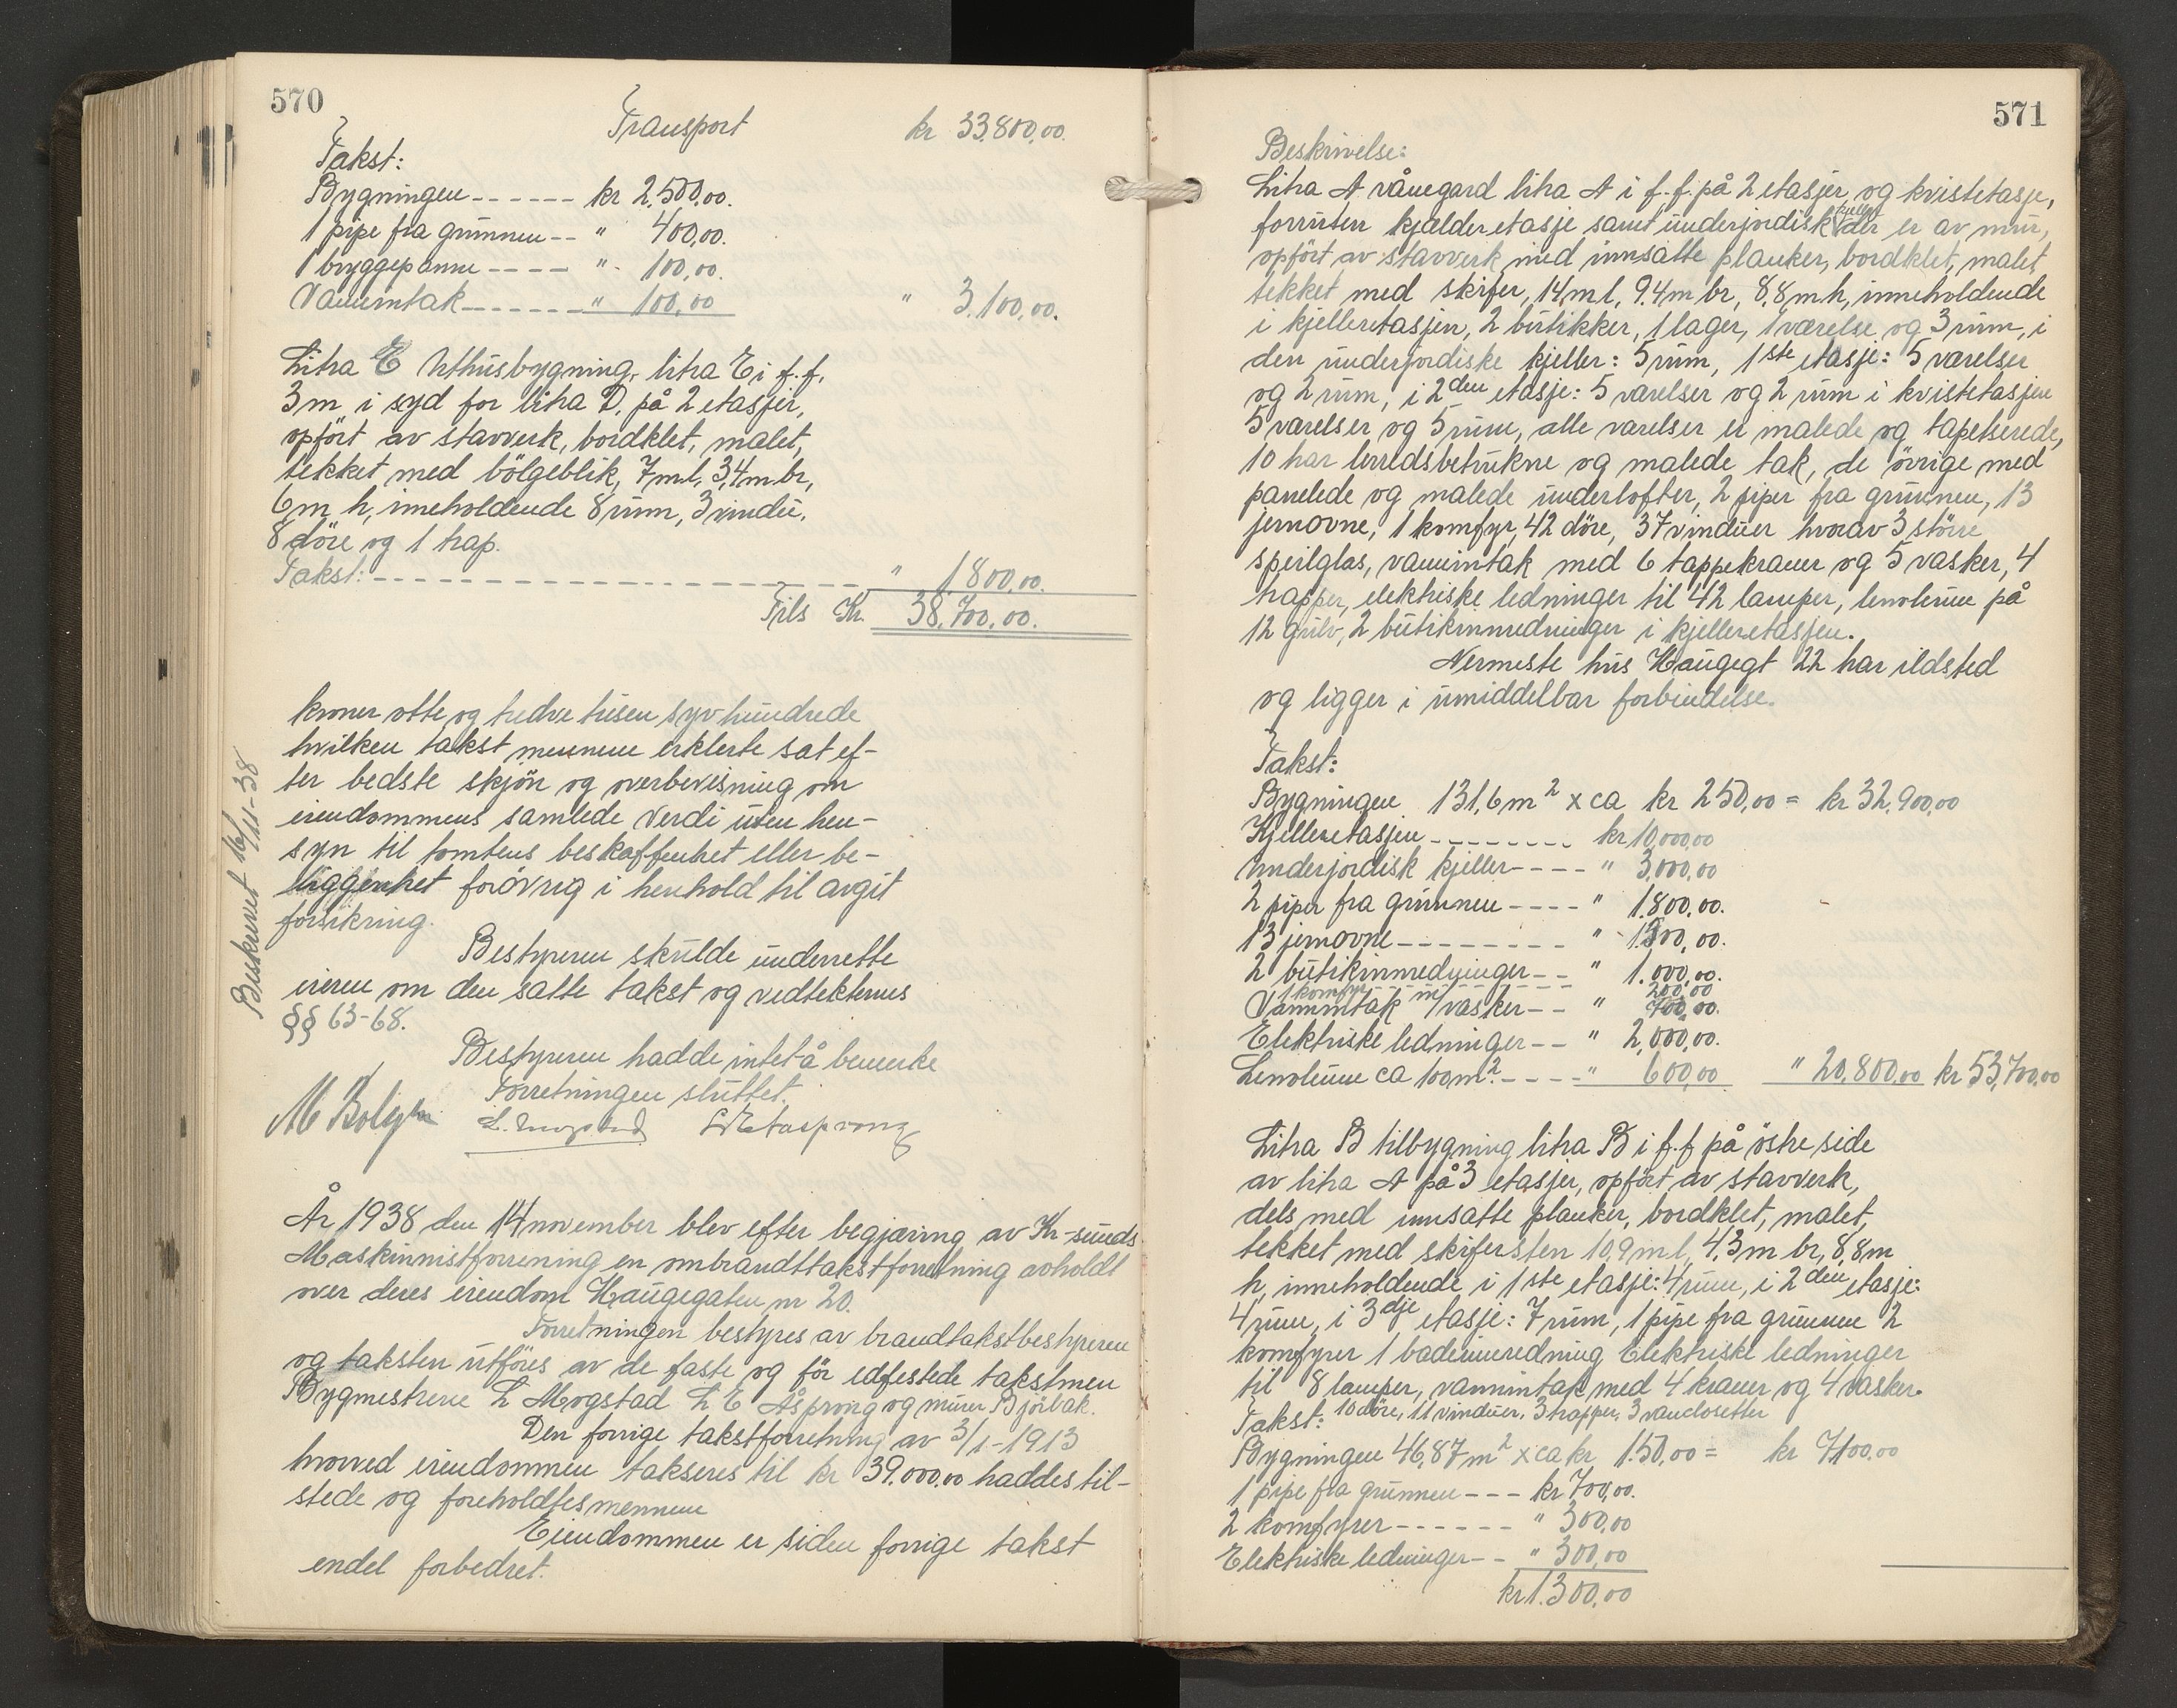 570
Transport kr 33.800,00.
Takst:
Bygningen ------ kr 2.500,00.
1 pipe fra grunnen -- " 400,00.
1 bryggepanne ---- " 100,00.
Vanninntak ------- " 100,00 " 3.100,00.
Litra E Uthusbygning, litra E i f.f.
3m i syd for litra D, på 2 etasjer,
opfört av stavverk, bordklet, malet,
tekket med bölgeblik, 7m l, 3,4m br,
6m h, inneholdende 8 rum, 3 vindu,
8 döre og 1 trap.
Takst: ------------------ " 1800,00.
Tils Kr. 38.700,00.
kroner otte og tredve tusen syv hundrede
hvilken takst mennene erklerte sat ef-
ter bedste skjön og overbevisning om
eiendommens samlede verdi uten hen-
syn til tomtens beskaffenhet eller be-
liggenhet forövrig i henhold til avgit
forsikring.
Bestyreren skulde underrette
eieren om den satte takst og vedtekternes
§§ 63-68.
Bestyreren hadde intet å bemerke
Forretningen sluttet.
Beskrevet 16/11-38
År 1938 den 14 november blev efter begjæring av Kr-sunds
Maskinnistforening en ombrandttakstforretning avholdt
over deres eiendom Haugegaten nr 20.
Forretningen bestyres av brandtakstbestyreren
og taksten utföres av de faste og för edfestede takstmen
Bygmestrene L Mogstad L E Åsprong og murer Björbak.
Den forrige takstforretning av 3/1-1913
hvorved eiendommen takseres til kr 39.000.00 haddes til-
stede og foreholdtes mennene
Eiendommen er siden forrige takst
endel forbedret.
571
Beskrivelse:
Litra A vånegard litra A i f.f. på 2 etasjer og kvistetasje,
forruten kjælderetasje samt underjordisk kjeller der er av mur,
opfört av stavverk med innsatte planker, bordklet, malet,
tekket med skifer, 14m l, 9.4m br, 8,8m h, inneholdende
i kjelleretasjen, 2 butikker, 1 lager, 1 værelse og 3 rum, i
den underjordiske kjeller: 5 rum, 1ste etasje: 5 varelser
og 2 rum, i 2den etasje: 5 varelser og 2 rum i kvistetasjen
5 varelser og 5 rum, alle varelser er malede og tapetserede,
10 har lerredsbetrukne og malede tak, de övrige med
panelede og malede underlofter, 2 piper fra grunnen, 13
jernovne, 1 komfyr, 42 döre, 37 vinduer hvorav 3 större
speilglas, vanninntak med 6 tappekraner og 5 vasker, 4
trapper, elektriske ledninger til 42 lamper, lenoleum på
12 gulv, 2 butikinnredninger i kjelleretasjen.
Nermeste hus Haugegt 22 har ildsted
og ligger i umiddelbar forbindelse.
Takst:
Bygningen 131,6m² x ca kr 250,00 = kr 32.900,00
Kjelleretasjen -------- kr 10,000,00
Underjordisk kjeller ---- " 3,000,00
2 piper fra grunnen ---- " 1.800,00.
13 jernovne -------- " 1500,00.
2 butikinnredninger -- " 1.000,00.
1 komfyr ------ 200,00
Vanninntak m/vasker -- " 700,00.
Elektriske ledninger -- " 2,000,00.
Lenoleum ca 100m² ---- " 600,00 " 20,800,00 kr 53,700,00
Litra B tilbygning litra B i f.f på östre side
av litra A på 3 etasjer, opfört av stavverk,
dels med innsatte planker, bordklet, malet,
tekket med skifersten 10,9m l, 4,3m br, 8,8m
h, inneholdende i 1ste etasje: 4 rum, i 2den etasje:
4 rum, i 3dje etasje: 7 rum, 1 pipe fra grunnen 2
komfyrer 1 badeinnredning Elektriske ledninger
til 8 lamper, vanninntak med 4 kraner og 4 vasker.
10 döre, 11 vinduer, 3 trapper, 3 vanclosetter
Takst:
Bygningen 46,87m² x ca kr 150,00 = kr 7100,00
1 pipe fra grunnen --- kr 700,00.
2 komfyrer ------ " 300,00
Elektriske ledninger -- " 300,00
kr 1.300,00